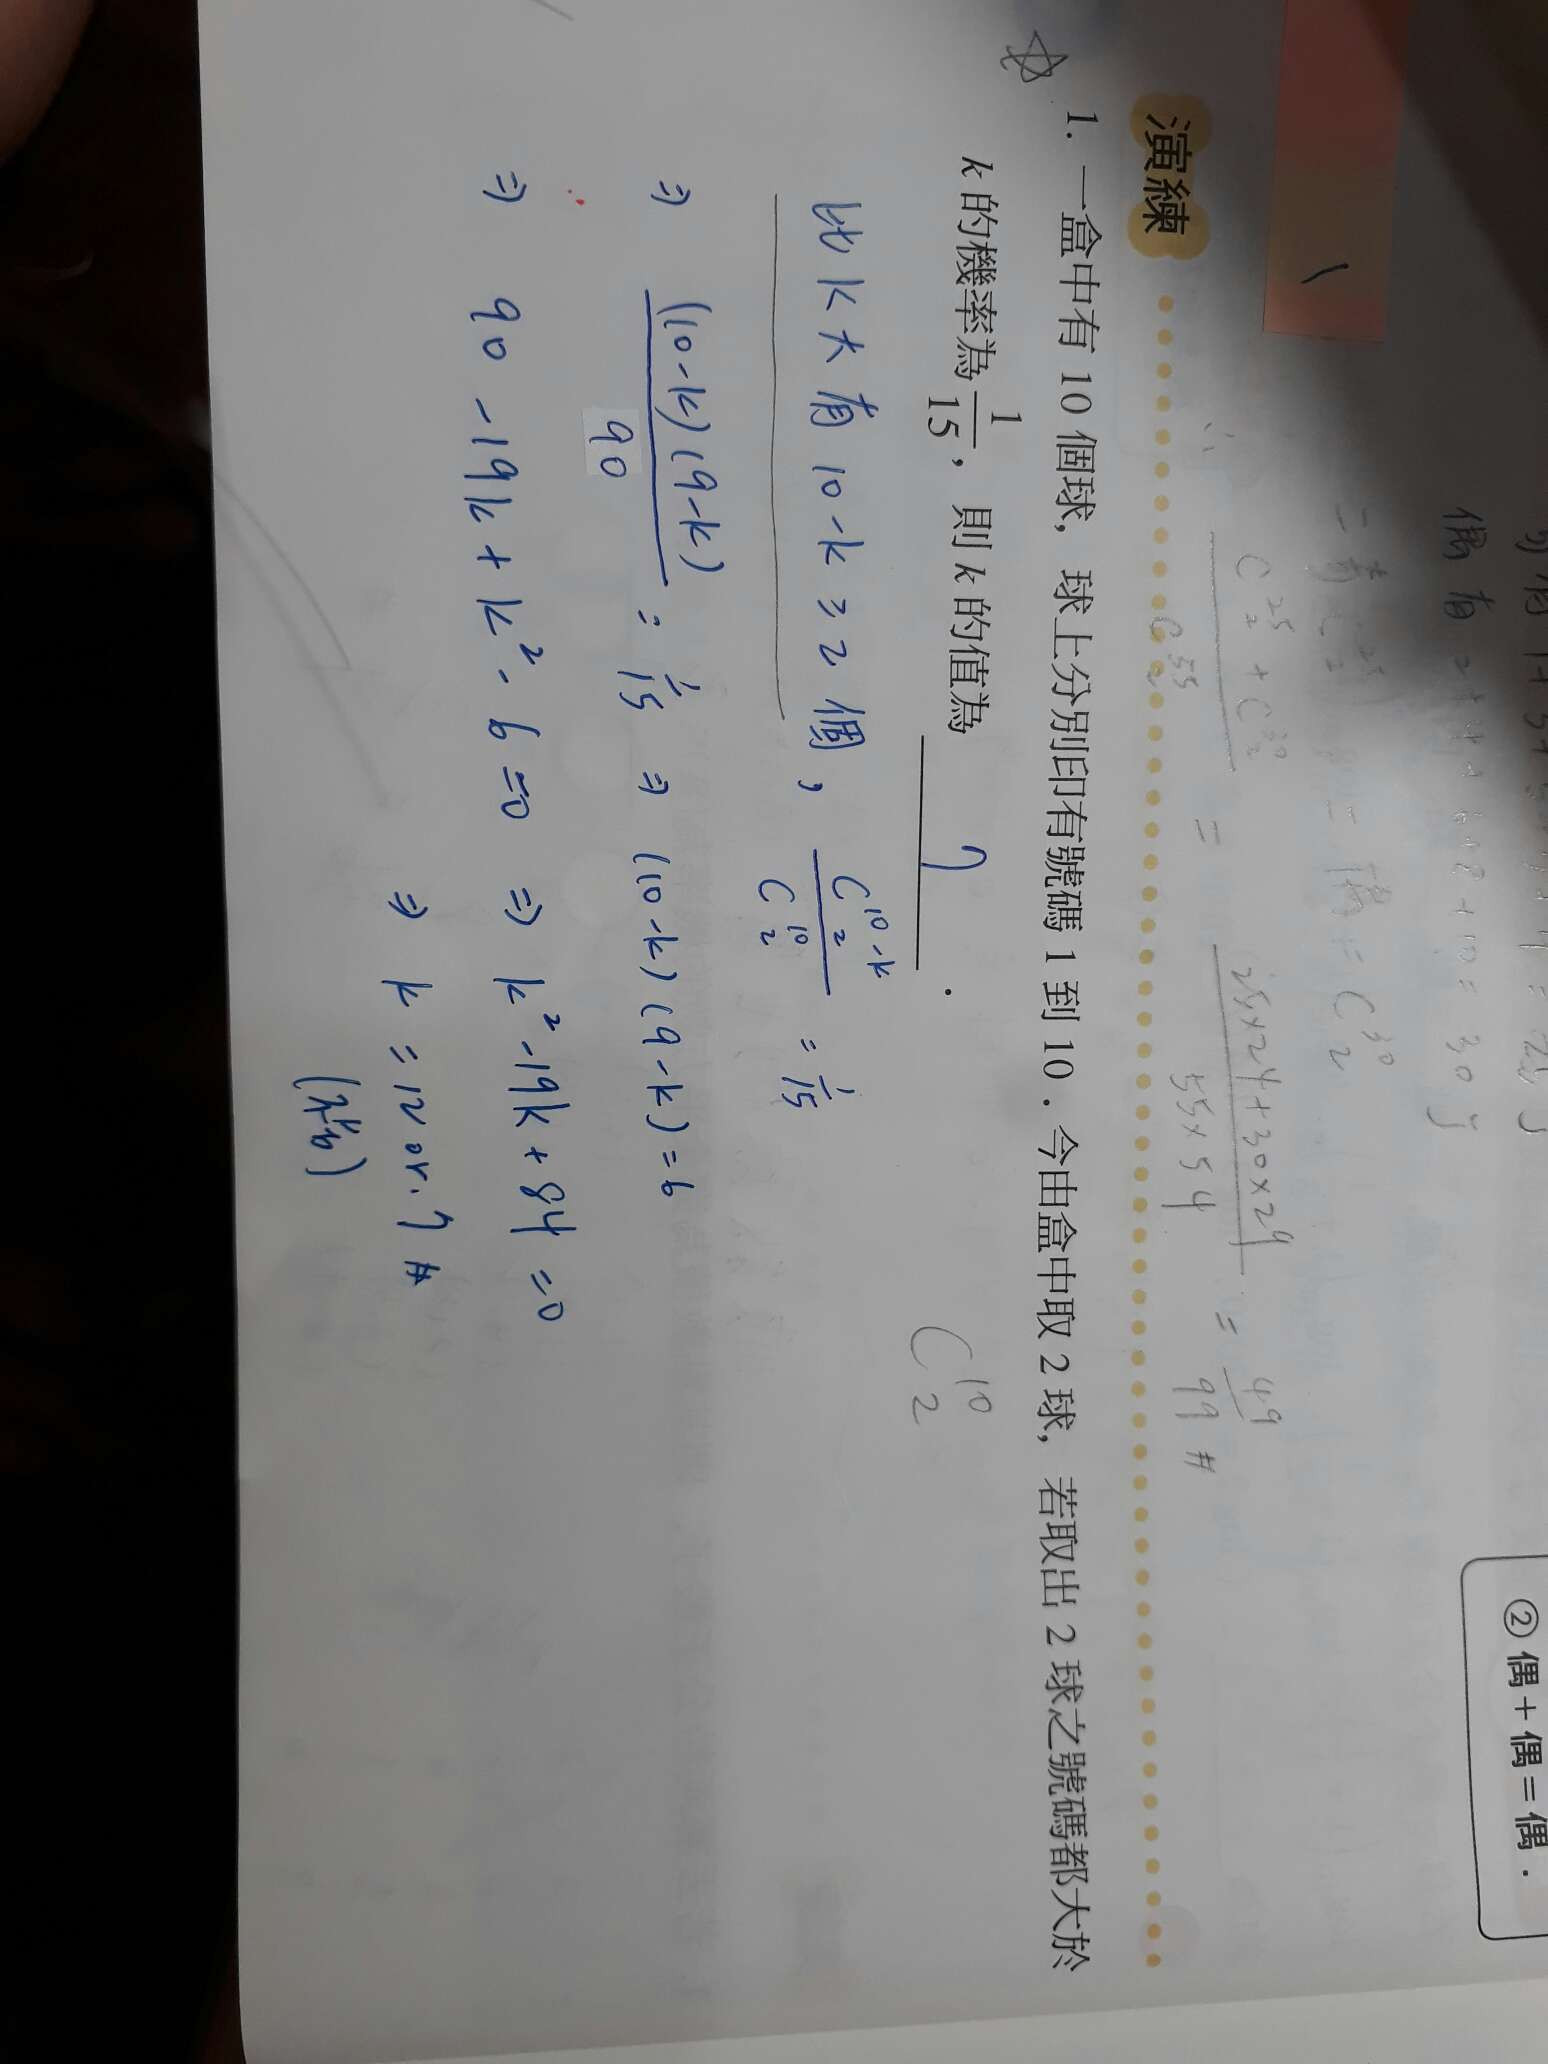 偶有 2+4+6+8+10=30
C²⁵₂ + C³⁰₂
C⁵⁵₂
=
25×24+30×29
55×54
= 49/99 #
② 偶+偶=偶.
演練
1. 一盒中有 10 個球, 球上分別印有號碼 1 到 10. 今由盒中取 2 球, 若取出 2 球之號碼都大於
k 的機率為 1/15, 則 k 的值為 7 .
C¹⁰₂
比 k 大有 10-k ≥ 2 個, C¹⁰⁻ᵏ₂ / C¹⁰₂ = 1/15
⇒ (10-k)(9-k) / 90 = 1/15 ⇒ (10-k)(9-k)=6
⇒ 90-19k+k²-6=0 ⇒ k²-19k+84=0
⇒ k=12 or 7 #
(不合)